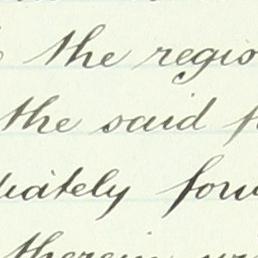 the regio
the said f
iately forw
therein